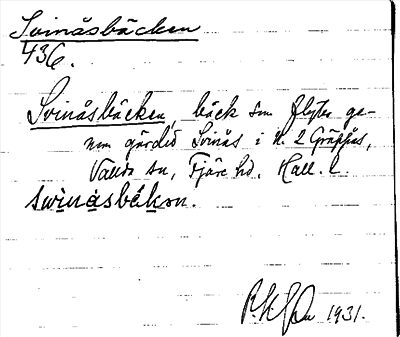 Svinåsbäcken
436.
Svinåsbäcken, bäck som flyter ge-
nom gärdet Svinås i N. 2
Vallda sn, Fjäre hd. Hall. l.
swinåsbäkən.
1931.